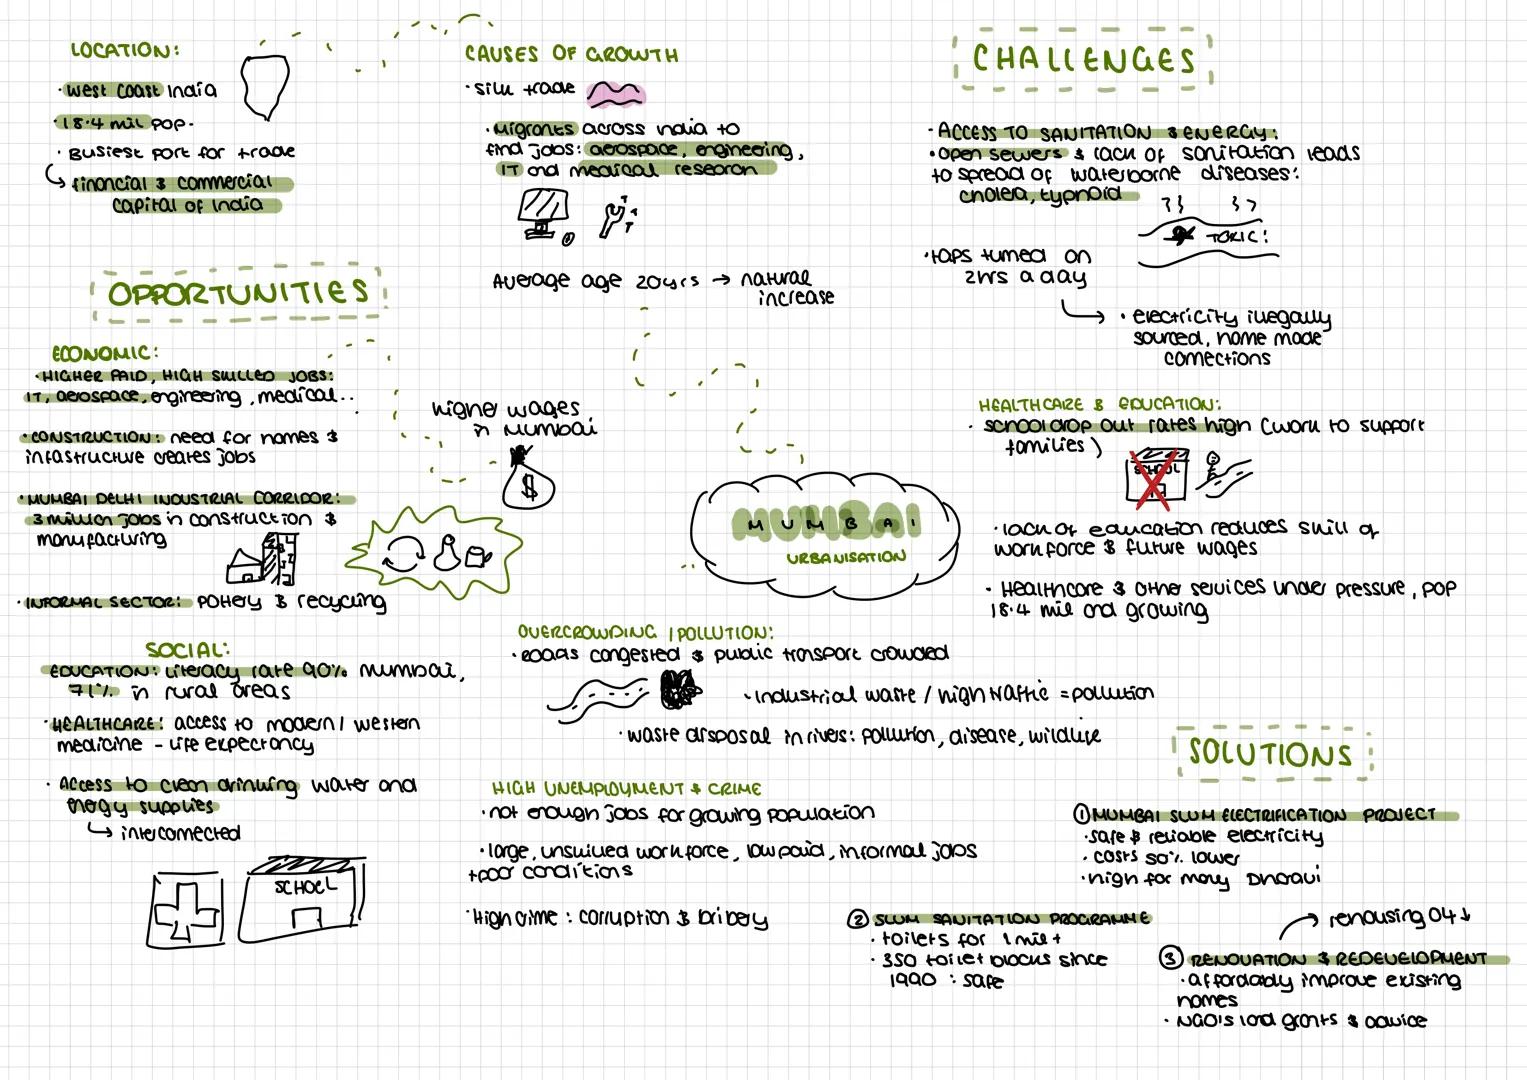 LOCATION:
· West Coast India
· 18.4 mil pop.
· Busiest port for trade
↳ financial & commercial
capital of India
CAUSES OF GROWTH
· silk trade
· Migrants across india to
find jobs: aerospace, engineering,
IT and medical research
Average age 20yrs → natural
increase
OPPORTUNITIES
ECONOMIC:
· HIGHER PAID, HIGH SKILLED JOBS:
IT, aerospace, engineering, medical..
· CONSTRUCTION: need for homes &
infastructure creates jobs
· MUMBAI DELHI INDUSTRIAL CORRIDOR:
3 million jobs in construction &
manufacturing
· INFORMAL SECTOR: pottery & recycling
higher wages
in Mumbai
$
SOCIAL:
EDUCATION: literacy rate 90% mumbai,
71% in rural areas
· HEALTHCARE: access to modern / western
medicine - life expectancy
· Access to clean drinking water and
energy supplies
↳ interconnected
SCHOOL
MUMBAI
URBANISATION
CHALLENGES
· ACCESS TO SANITATION & ENERGY:
· open sewers & lack of sanitation leads
to spread of waterborne diseases:
cholera, typhoid
TOXIC!
· taps turned on
2hrs a day
· electricity illegally
sourced, home made
connections
HEALTHCARE & EDUCATION:
· school drop out rates high (work to support
families)
SCHOOL
· lack of education reduces skill of
workforce & future wages
· Healthcare & other services under pressure, pop
18.4 mil and growing
OVERCROWDING / POLLUTION:
· Roads congested & public transport crowded
· industrial waste / high traffic = pollution
· waste disposal in rivers: pollution, disease, wildlife
HIGH UNEMPLOYMENT & CRIME
· not enough jobs for growing population
· large, unskilled workforce, low paid, informal jobs
+ poor conditions
· High crime: corruption & bribery
SOLUTIONS
① MUMBAI SLUM ELECTRIFICATION PROJECT
· safe & reliable electricity
· costs 50% lower
· high for many Dharavi
② SLUM SANITATION PROGRAMME
· toilets for 1 mil +
· 350 toilet blocks since
1990 : safe
rehousing 04 ↓
③ RENOVATION & REDEVELOPMENT
· affordably improve existing
homes
· NGO's grants & advice